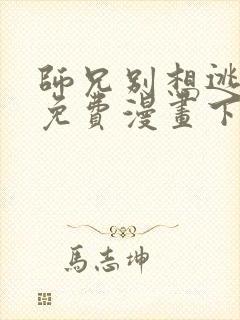 師兄別想逃
免費漫畫下
馬志坤